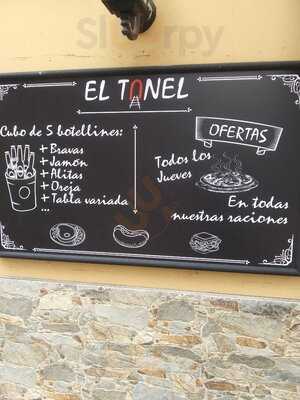 EL TUNEL
Cubo de 5 botellines:
+ Bravas
+ Jamón
+ Alitas
+ Oreja
+ Tabla variada
...
OFERTAS
Todos los
Jueves
En todas
nuestras raciones